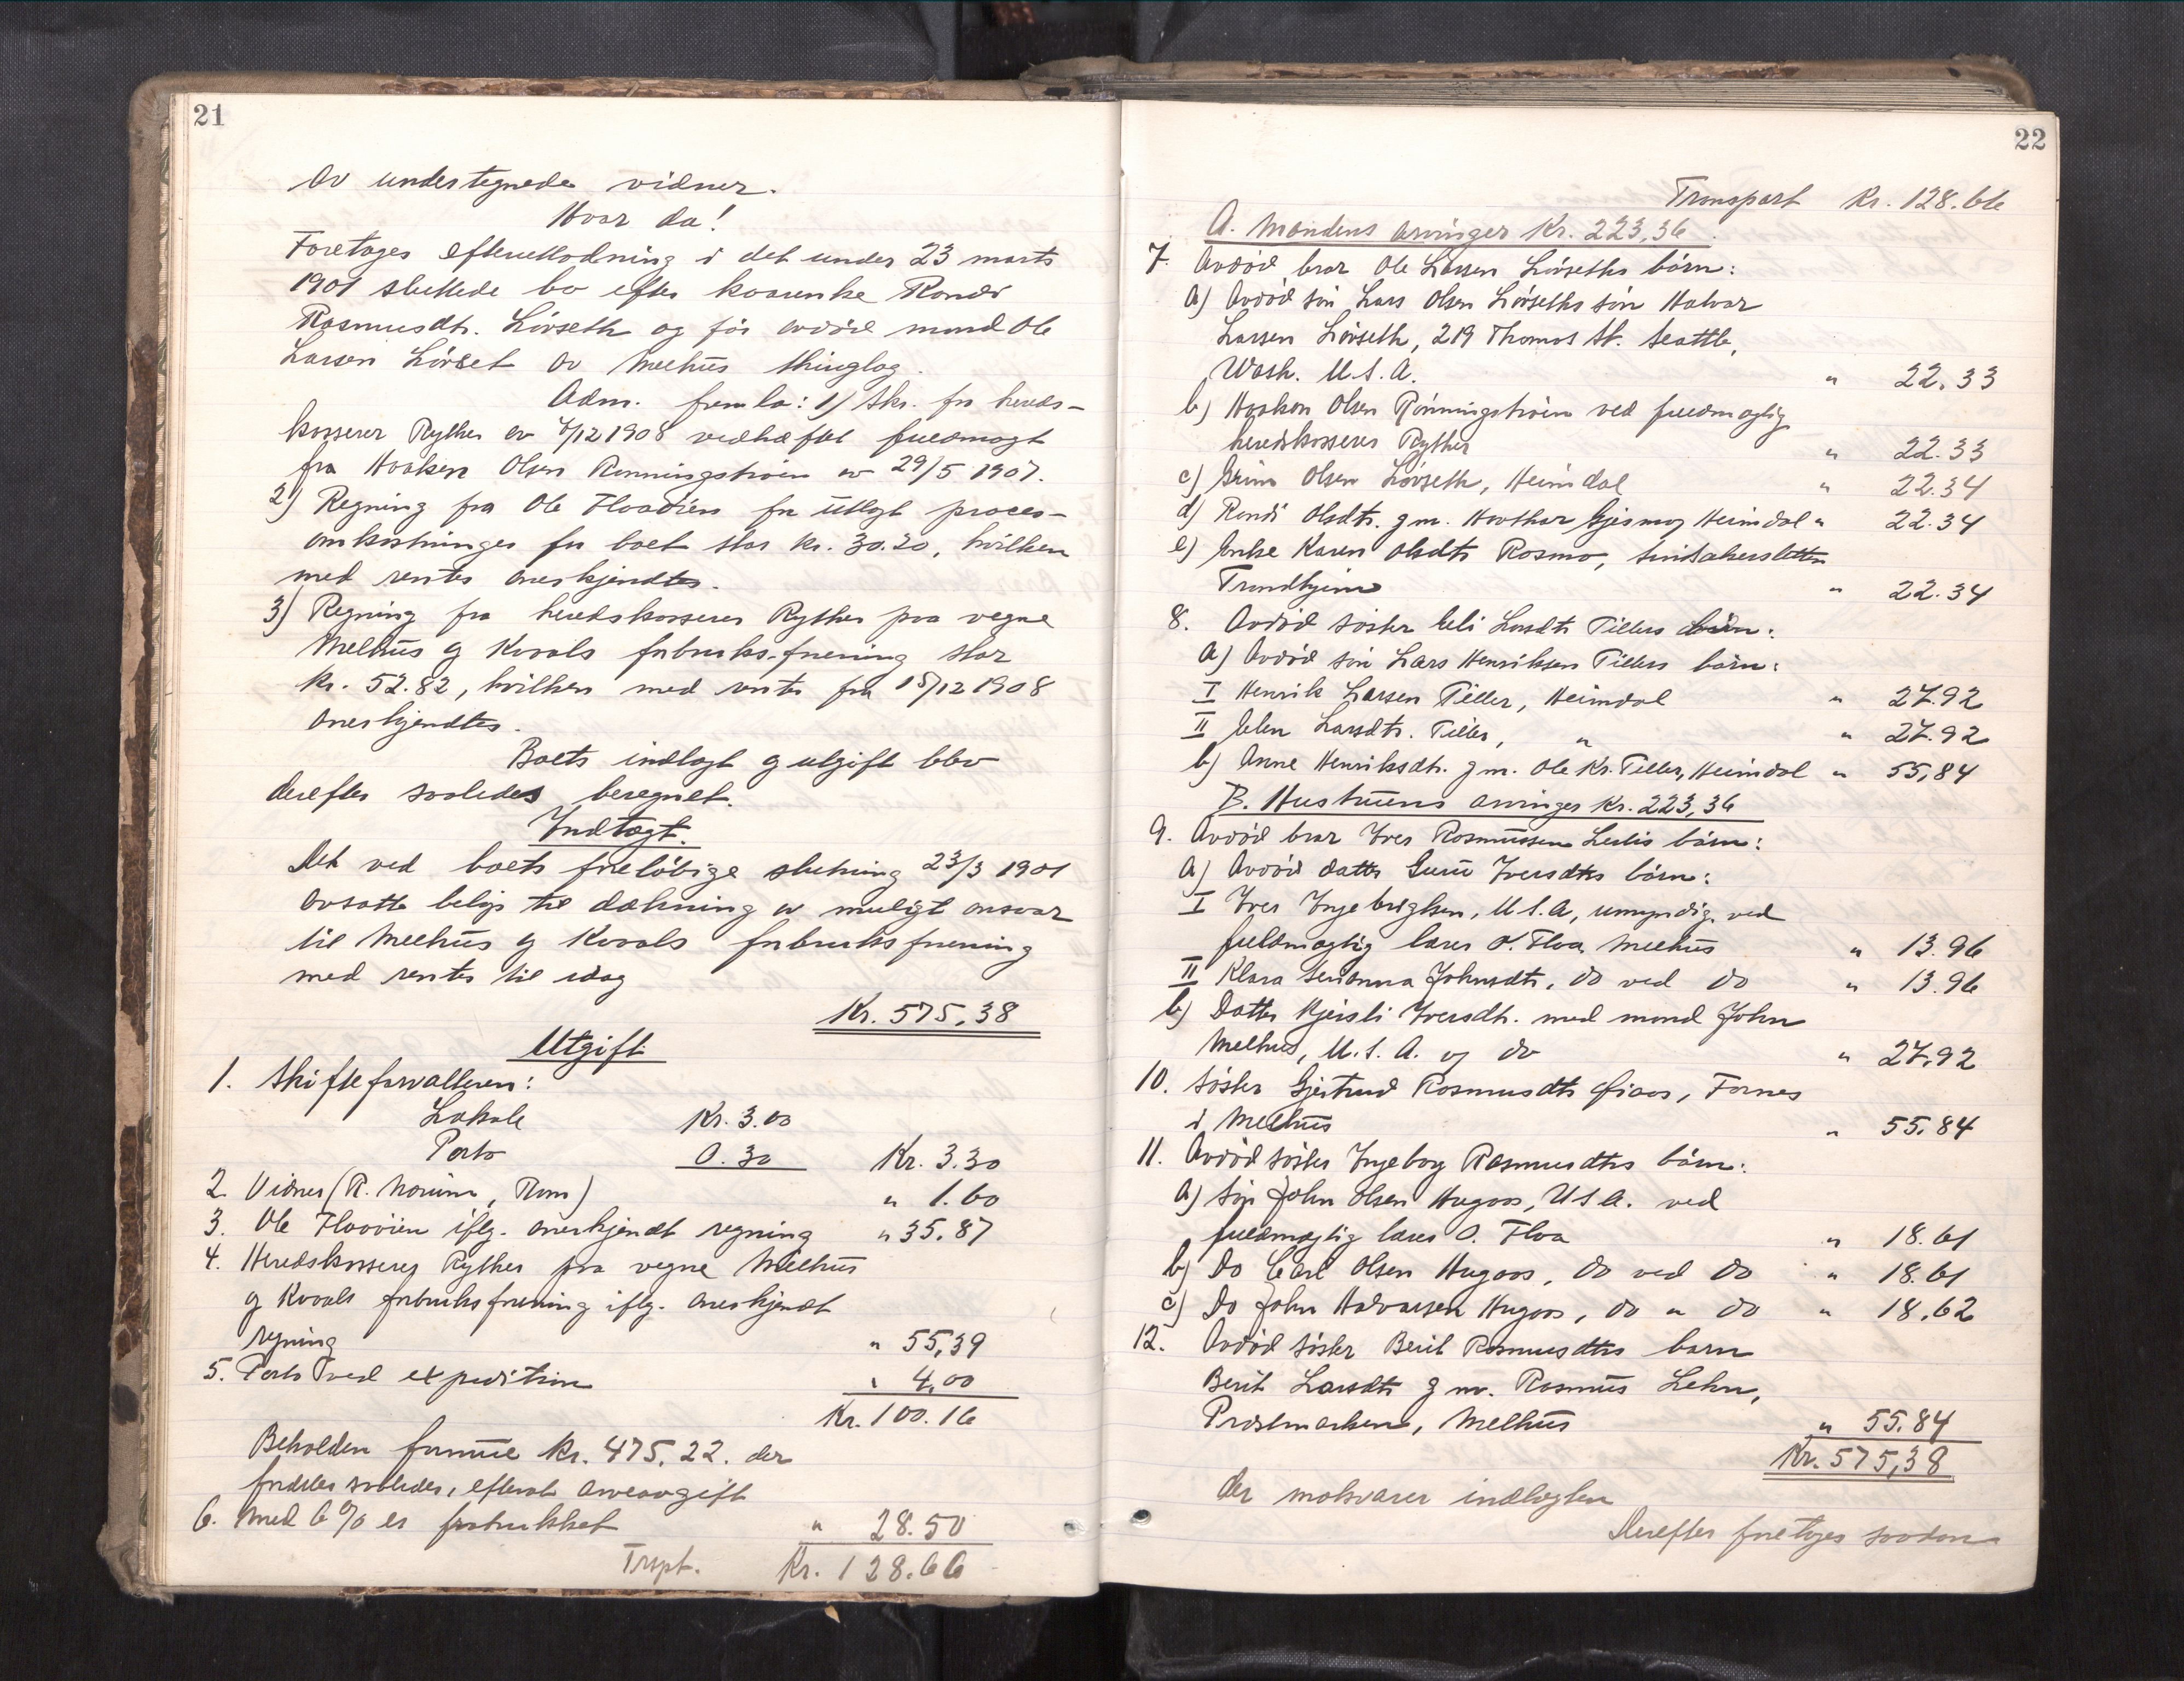 21
Av undertegnede vidner.
Hvor da!
Foretoges efterutlodning i det under 23 marts
1901 sluttede bo efter kaarenke Randi
Rasmusdtr. Lövseth og för avdöd mand Ole
Larsen Lövset av Melhus thinglag.
Adm. fremla: 1) Skr. fra hereds-
kasserer Ryther av 7/12 1908 vedhæftet fuldmagt
fra Haakon Olsen Rønningstrøen av 29/5 1907.
2) Regning fra Ole Floaöien for utlagt proces-
omkostninger for boet stor kr. 30.20, hvilken
med renter anerkjendtes.
3) Regning fra heredskasserer Ryther paa vegne
Melhus og Kvaals forbruksforening stor
kr. 52.82, hvilken med renter fra 15/12 1908
anerkjendtes.
Boets indtægt og utgift blev
derefter saaledes beregnet.
Indtægt.
Det ved boets foreløbige slutning 23/3 1901
avsatte beløp til dækning av muligt ansvar
til Melhus og Kvaals forbruksforening
med renter til idag
Kr. 575,38
Utgift
1. Skifteforvalteren:
Lokale Kr. 3.00
Porto 0.30 Kr. 3.30
2. Vidner (R. Morum, Rom) " 1.60
3. Ole Floaöien iflg. anerkjendt regning " 35.87
4. Heredskasserer Ryther paa vegne Melhus
og Kvaals forbruksforening iflg. anerkjendt
regning " 55,39
5. Porto ved expedition " 4,00
Kr. 100.16
Beholden formue kr. 475.22. der
fordeles saaledes, efterat arveavgift
6. med 6% er fratrukket " 28.50
Trspt. Kr. 128.66
22
Transport kr. 128.66
A. Mandens arvinger Kr. 223,36.
7. Avdöd bror Ole Larsen Lövseths börn:
a) Avdöd sön Lars Olsen Lövseths sön Halvar
Larsen Lövseth, 219 Thomas St. Seattle,
Wash. U.S.A. " 22.33
b) Haakon Olsen Rönningströen ved fuldmægtig
heredskasserer Ryther " 22.33
c) Grim Olsen Lövseth, Heimdal " 22.34
d) Randi Olsdtr. g.m. Heimdal " 22.34
e) Enke Karen Olsdtr Rosmo,
Trondhjem " 22.34
8. Avdöd söster Eli Larsdtr Tillers börn:
a) Avdöd sön Lars Henriksen Tillers börn:
I Henrik Larsen Tiller, Heimdal " 27.92
II Elen Larsdtr. Tiller, " " 27.92
b) Anne Henriksdtr. g.m. Ole Kr. Tiller, Heimdal " 55,84
B. Hustruens arvinger Kr. 223,36
9. Avdöd bror Iver Rasmussen Lerlis börn:
a) Avdöd datter Guru Iversdtrs börn:
I Iver Ingebrigtsen, U.S.A, umyndig ved
fuldmægtig lærer O. Floa Melhus " 13.96
II Klara Serianna Johnsdtr, do ved do " 13.96
b) Datter Kjersti Iversdtr. med mand John
Melhus, U.S.A. og do " 27.92
10. Söster Gjertrud Rasmusdtr Graas, Fornes
i Melhus " 55.84
11. Avdöd söster Ingeborg Rasmusdtrs börn:
a) Sön John Olsen Hugaas, U.S.A. ved
fuldmægtig lærer O. Floa " 18.61
b) Do Carl Olsen Hugaas, do ved do " 18.61
c) Do John Halvorsen Hugaas, do " do " 18.62
12. Avdöd söster Berit Rasmusdtrs barn
Berit Larsdtr g.m. Rasmus Lehn,
Prestmarken, Melhus " 55.84
Kr. 575,38
der motsvarer indtægten
Derefter foretoges saadan